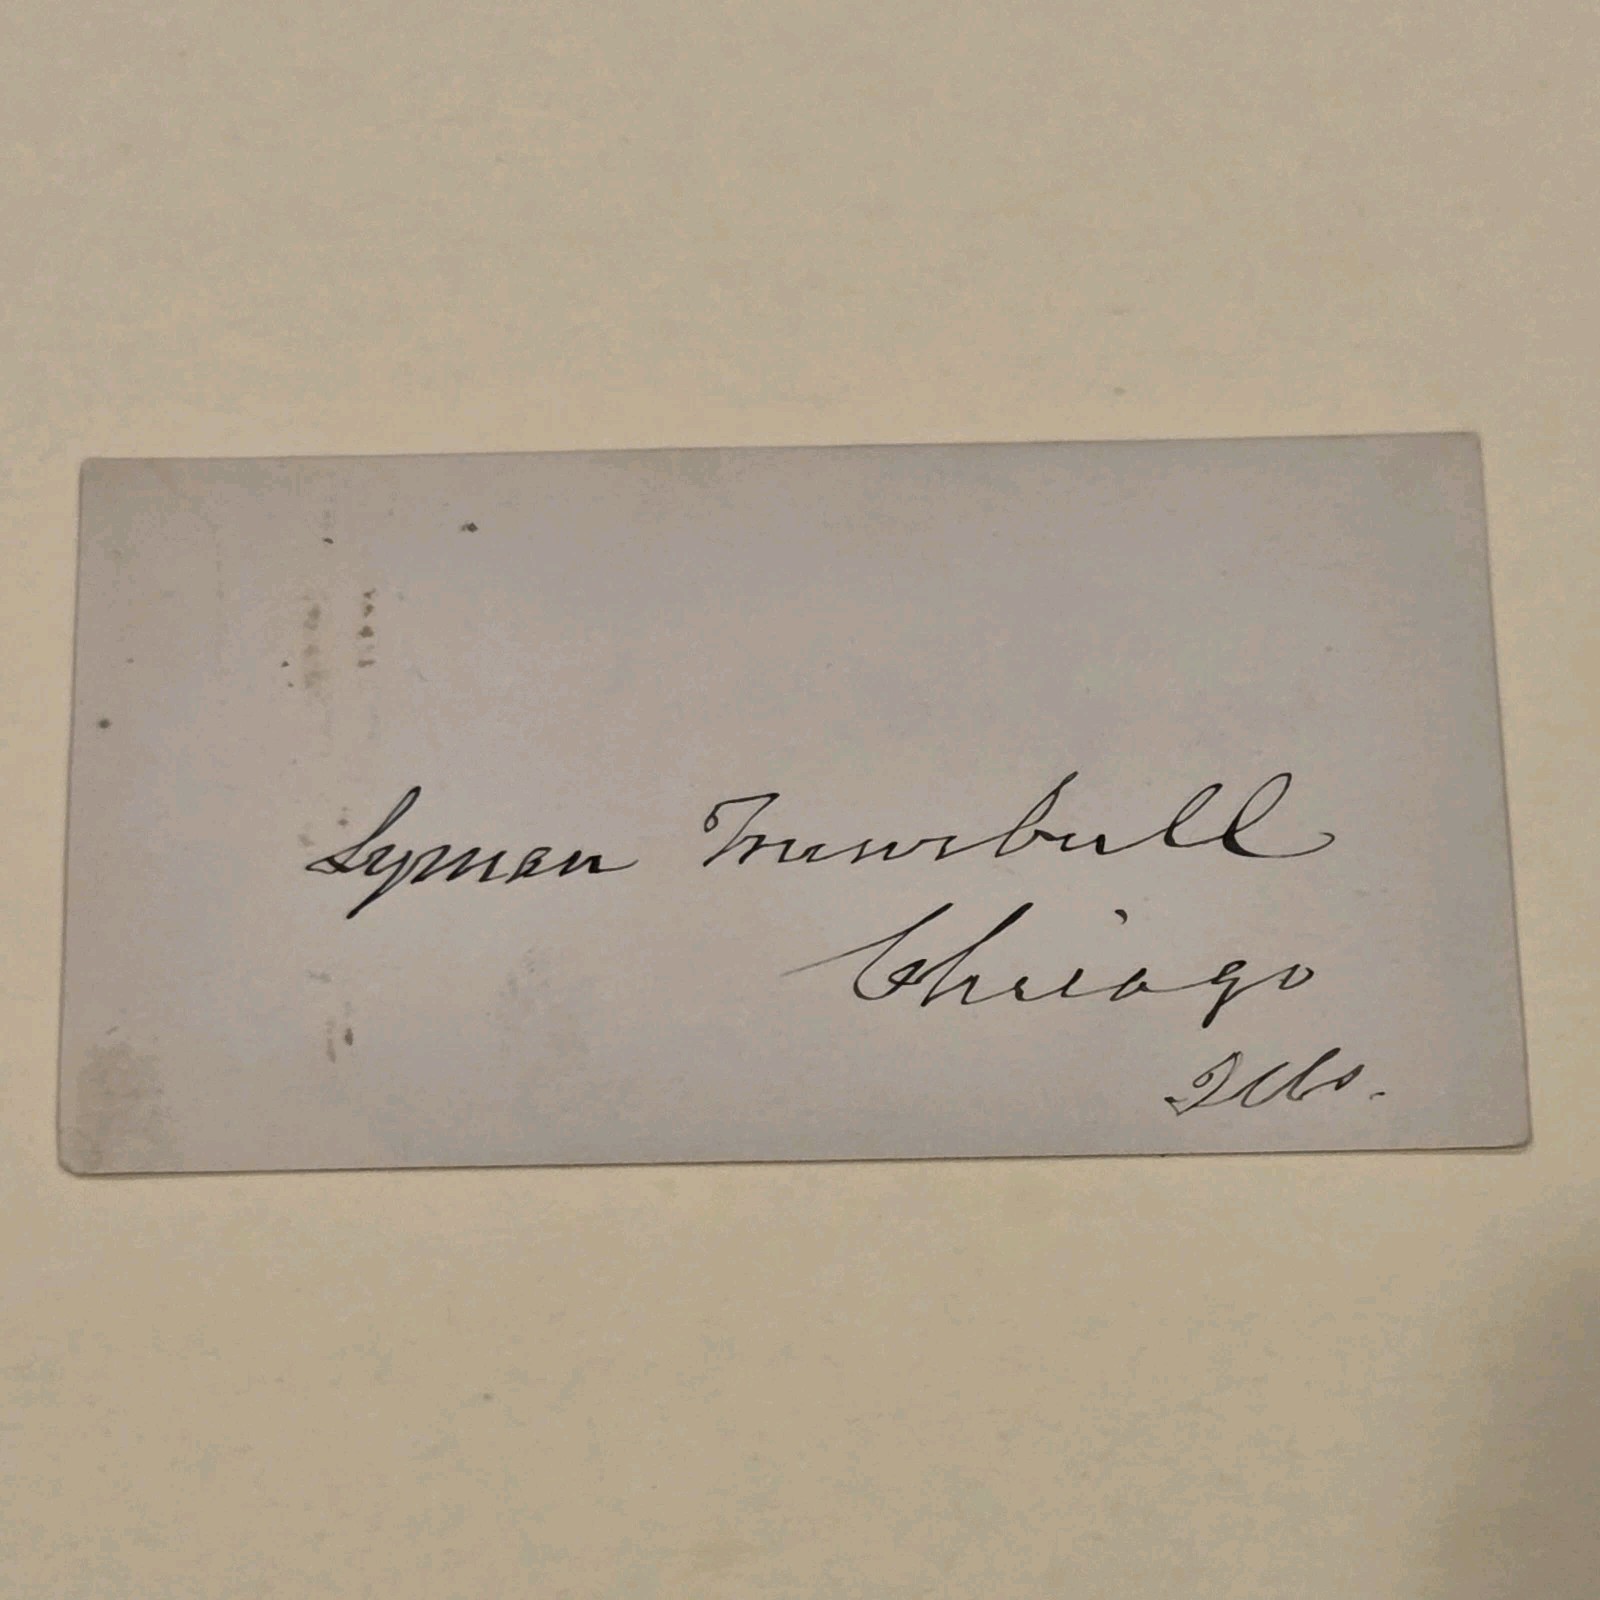 Lyman Trumbull
Chicago
Ills.